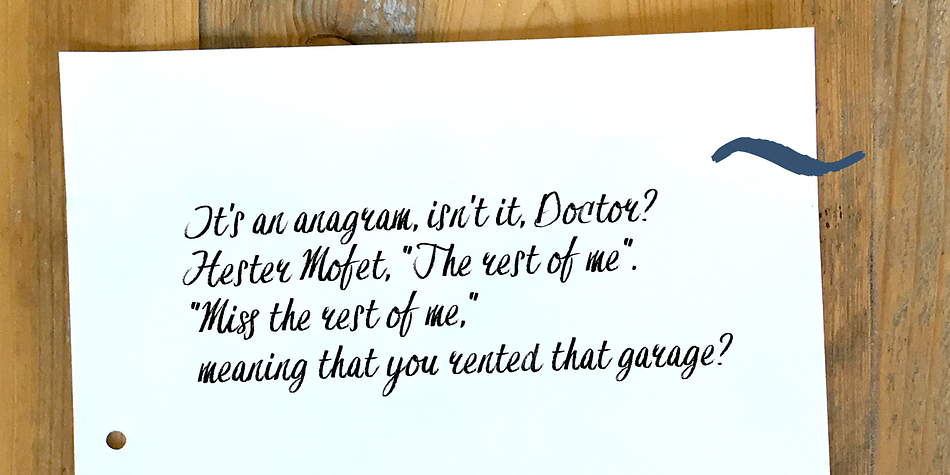 It's an anagram, isn't it, Doctor?
Hester Mofet, "The rest of me".
"Miss the rest of me,"
meaning that you rented that garage?